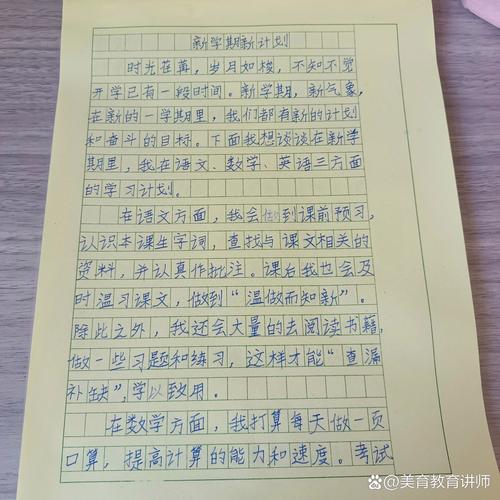 新学期新计划
时光荏苒，岁月如梭，不知不觉
开学已有一段时间。新学期，新气象，
在新的一学期里，我们都有新的计划
和奋斗的目标。下面我想谈谈在新学
期里，我在语文、数学、英语三方面
的学习计划。
在语文方面，我会做到课前预习，
认识本课生字词，查找与课文相关的
资料，并认真作批注。课后我也会及
时温习课文，做到“温做而知新”。
除此之外，我还会大量的去阅读书籍，
做一些习题和练习，这样才能“查漏
补缺”，学以致用。
在数学方面，我打算每天做一页
口算，提高计算的能力和速度。考试
美育教育讲师